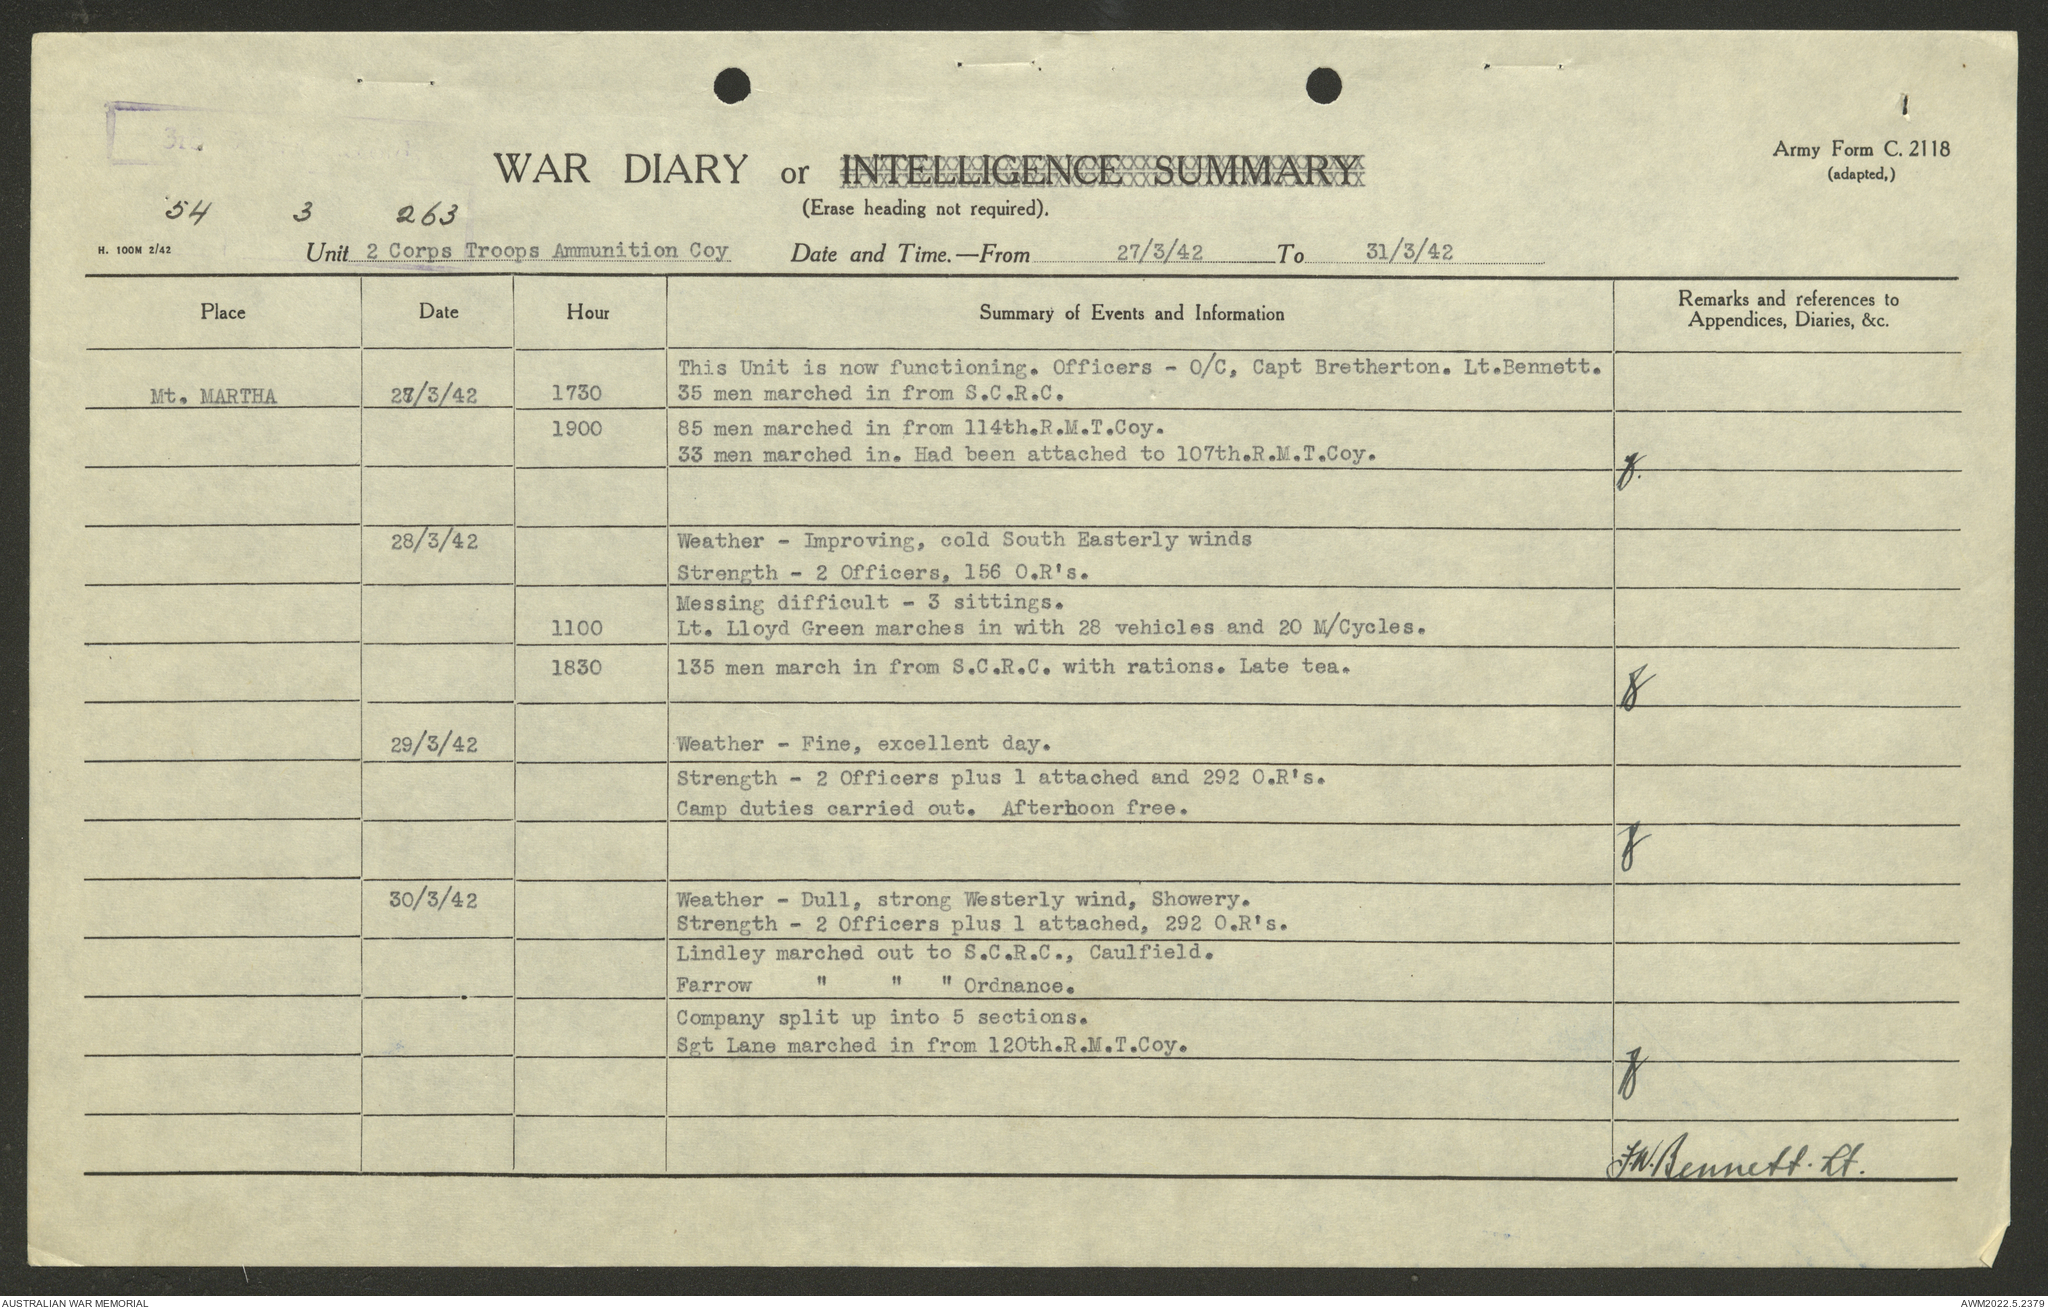 1
Army Form C. 2118
(adapted,)
WAR DIARY or INTELLIGENCE SUMMARY
(Erase heading not required).
54 3 263
H. 100M 2/42
Unit 2 Corps Troops Ammunition Coy Date and Time.—From 27/3/42 To 31/3/42
Place Date Hour Summary of Events and Information Remarks and references to
Appendices, Diaries, &c.
This Unit is now functioning. Officers - O/C, Capt Bretherton. Lt.Bennett.
Mt. MARTHA 27/3/42 1730 35 men marched in from S.C.R.C.
1900 85 men marched in from 114th.R.M.T.Coy.
33 men marched in. Had been attached to 107th.R.M.T.Coy.
28/3/42 Weather - Improving, cold South Easterly winds
Strength - 2 Officers, 156 O.R's.
Messing difficult - 3 sittings.
1100 Lt. Lloyd Green marches in with 28 vehicles and 20 M/Cycles.
1830 135 men march in from S.C.R.C. with rations. Late tea.
29/3/42 Weather - Fine, excellent day.
Strength - 2 Officers plus 1 attached and 292 O.R's.
Camp duties carried out. Afternoon free.
30/3/42 Weather - Dull, strong Westerly wind, Showery.
Strength - 2 Officers plus 1 attached, 292 O.R's.
Lindley marched out to S.C.R.C., Caulfield.
Farrow " " " Ordnance.
Company split up into 5 sections.
Sgt Lane marched in from 120th.R.M.T.Coy.
F.W. Bennett. Lt.
AUSTRALIAN WAR MEMORIAL AWM2022.5.2379